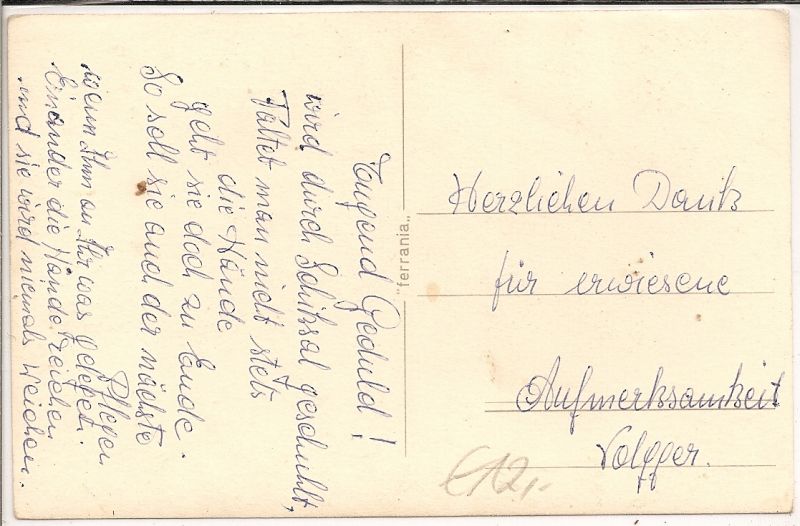 Tugend Geduld!
wird durch Schiksal geschuhlt,
Faltet man nicht stets
die Hände
geht sie doch zu Ende.
So soll sie auch der nächste
Pflegen
wenn Ihm an Ihr was gelegen.
Einander die Hände reichen
und sie wird niemals weichen.
"ferrania"
Herzlichen Dank
für erwiesene
Aufmerksamkeit
Volgger.
€12,-